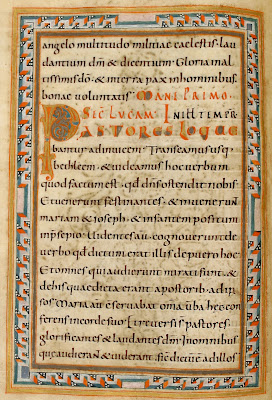 angelo multitudo militiae caelestis. lau
dantium dm̄ & dicentium. Gloria in al
tissimis dō. & in terra pax in hominibus
bonae voluntatis. MANE PRIMO.
SEC LUCAM. IN ILL TEMPR
PASTORES LOQUE
bantur ad inuicem. Transeamus usq;
bethleem. & uideamus hoc uerbum
quod factum est. qđ dn̄s ostendit nobis
Et uenerunt festinantes. & inuenerun
mariam & ioseph. & infantem positum
in presepio. Uidentes au. cognouerunt de
uerbo qđ dictum erat illis de puero hoc.
Et omnes qui audierunt mirati sunt. &
de his quae dicta erant a pastoribus ad ip
sos. Maria au conseruabat om̄a uba hec con
ferens in corde suo. Et reuersi s̄ pastores.
glorificantes & laudantes dm̄. In omnibus
quae audieran & uiderant. sic dictū ē ad illos